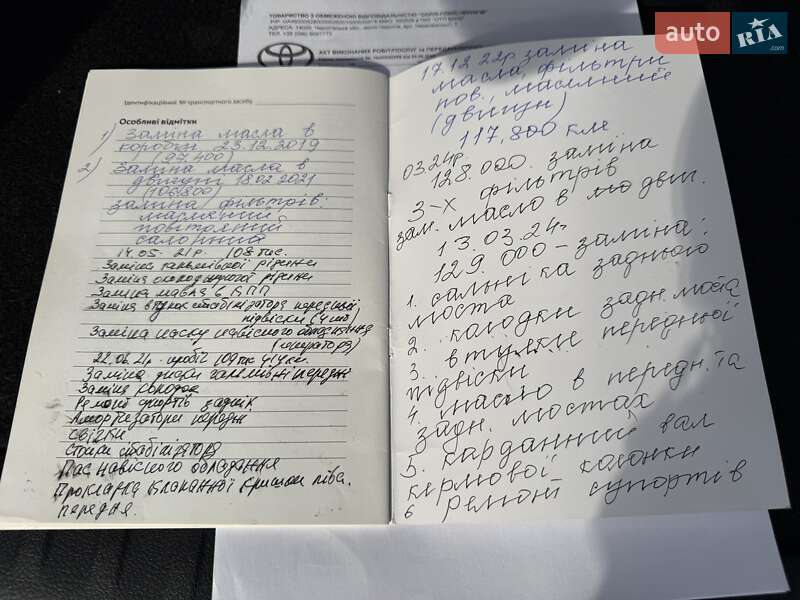 ТОВАРИСТВО З ОБМЕЖЕНОЮ ВІДПОВІДАЛЬНІСТЮ
АКТ ВИКОНАНИХ РОБІТ/ПОСЛУГ
auto RIA
.com
Ідентифікаційний № транспортного засобу
Особливі відмітки
1) Заміна масла в
коробки 23.12.2019
(97400)
2) Заміна масла в
двигуни 18.02.2021
заміна фільтрів:
масляний
повітряний
салонний
14.05.21р. 108 тис.
Заміна гальмівної рідини
Заміна охолоджуючої рідини
Заміна масла в КПП
Заміна втулок стабілізатора передньої
підвіски (4 шт)
Заміна паску навісного обладнання
(генератора)
пробіг 109 тис 414 км.
Заміна диски гальмівні передні
Заміна колодок
Ремонт супортів задніх
Амортизатори передні
Свічки
Стойки стабілізатора
Пас навісного обладнання
Прокладка клапанної кришки ліва.
передня.
17.12.22р заміна
масла, фільтри
пов., масляний
(двигун)
117,800 км
03.24р.
128.000. заміна
3-х фільтрів
зам. масло в дви.
13.03.24г.
129.000 - заміна:
1. сальніка заднього
моста
2. колодки задн. моста
3. втулки передньої
підвіски
4. масло в передн. та
задн. мостах
5. карданний вал
кермової колонки
6 ремонт супортів